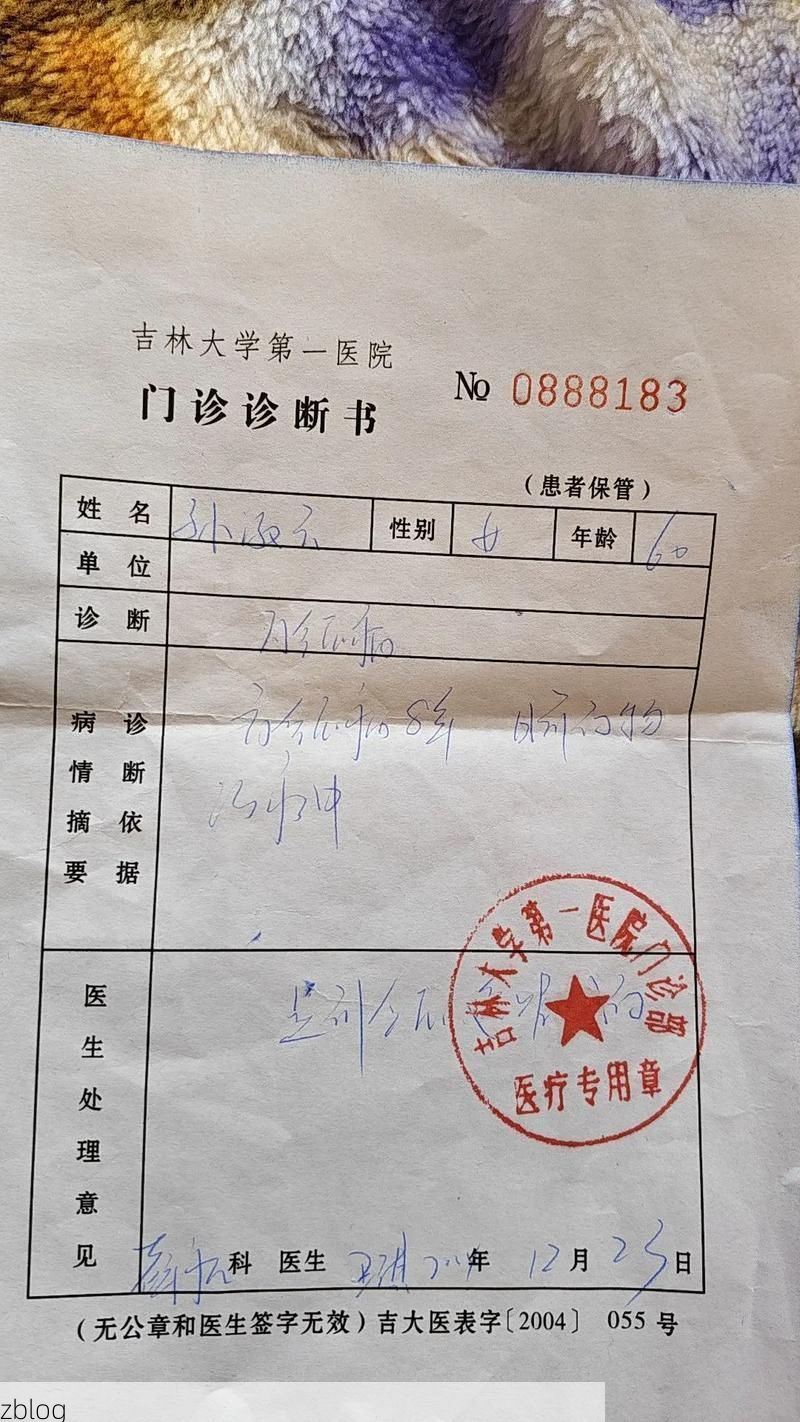 吉林大学第一医院
门诊诊断书
№ 0888183
（患者保管）
姓名 孙淑云 性别 女 年龄 60
单位
诊断 帕金森病
病情摘要 诊断依据
帕金森病8年 目前药物
治疗中
医生处理意见
吉林大学第一医院门诊部
医疗专用章
科 医生 年 12月 23日
（无公章和医生签字无效）吉大医表字〔2004〕 055 号
zblog